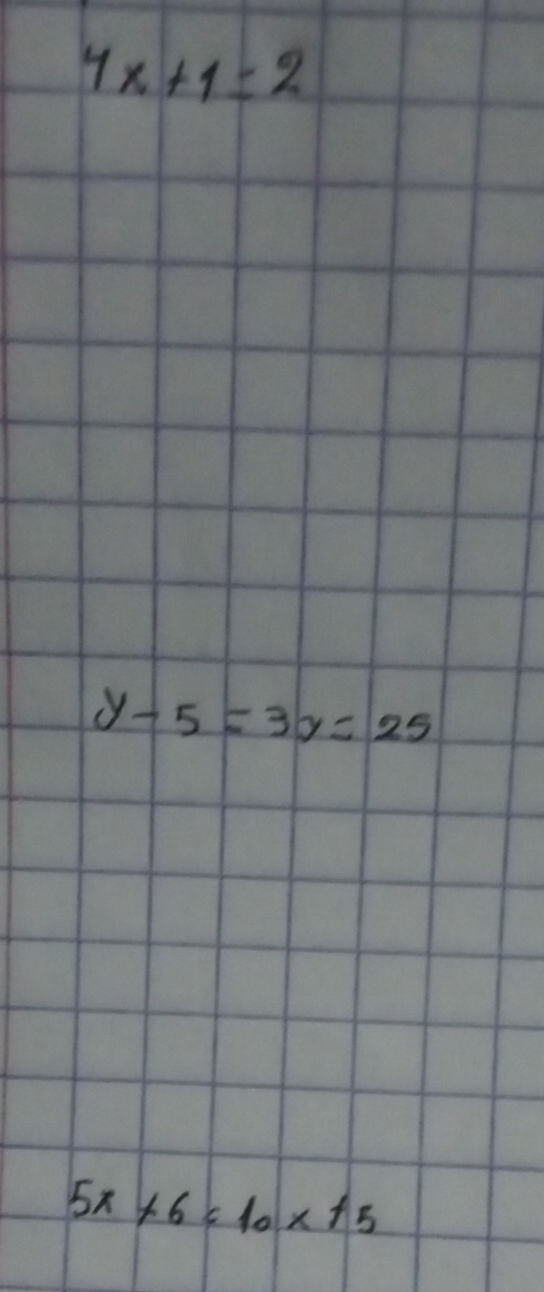 4x+1=2
y-5=3y=25
5x+6=10x+5